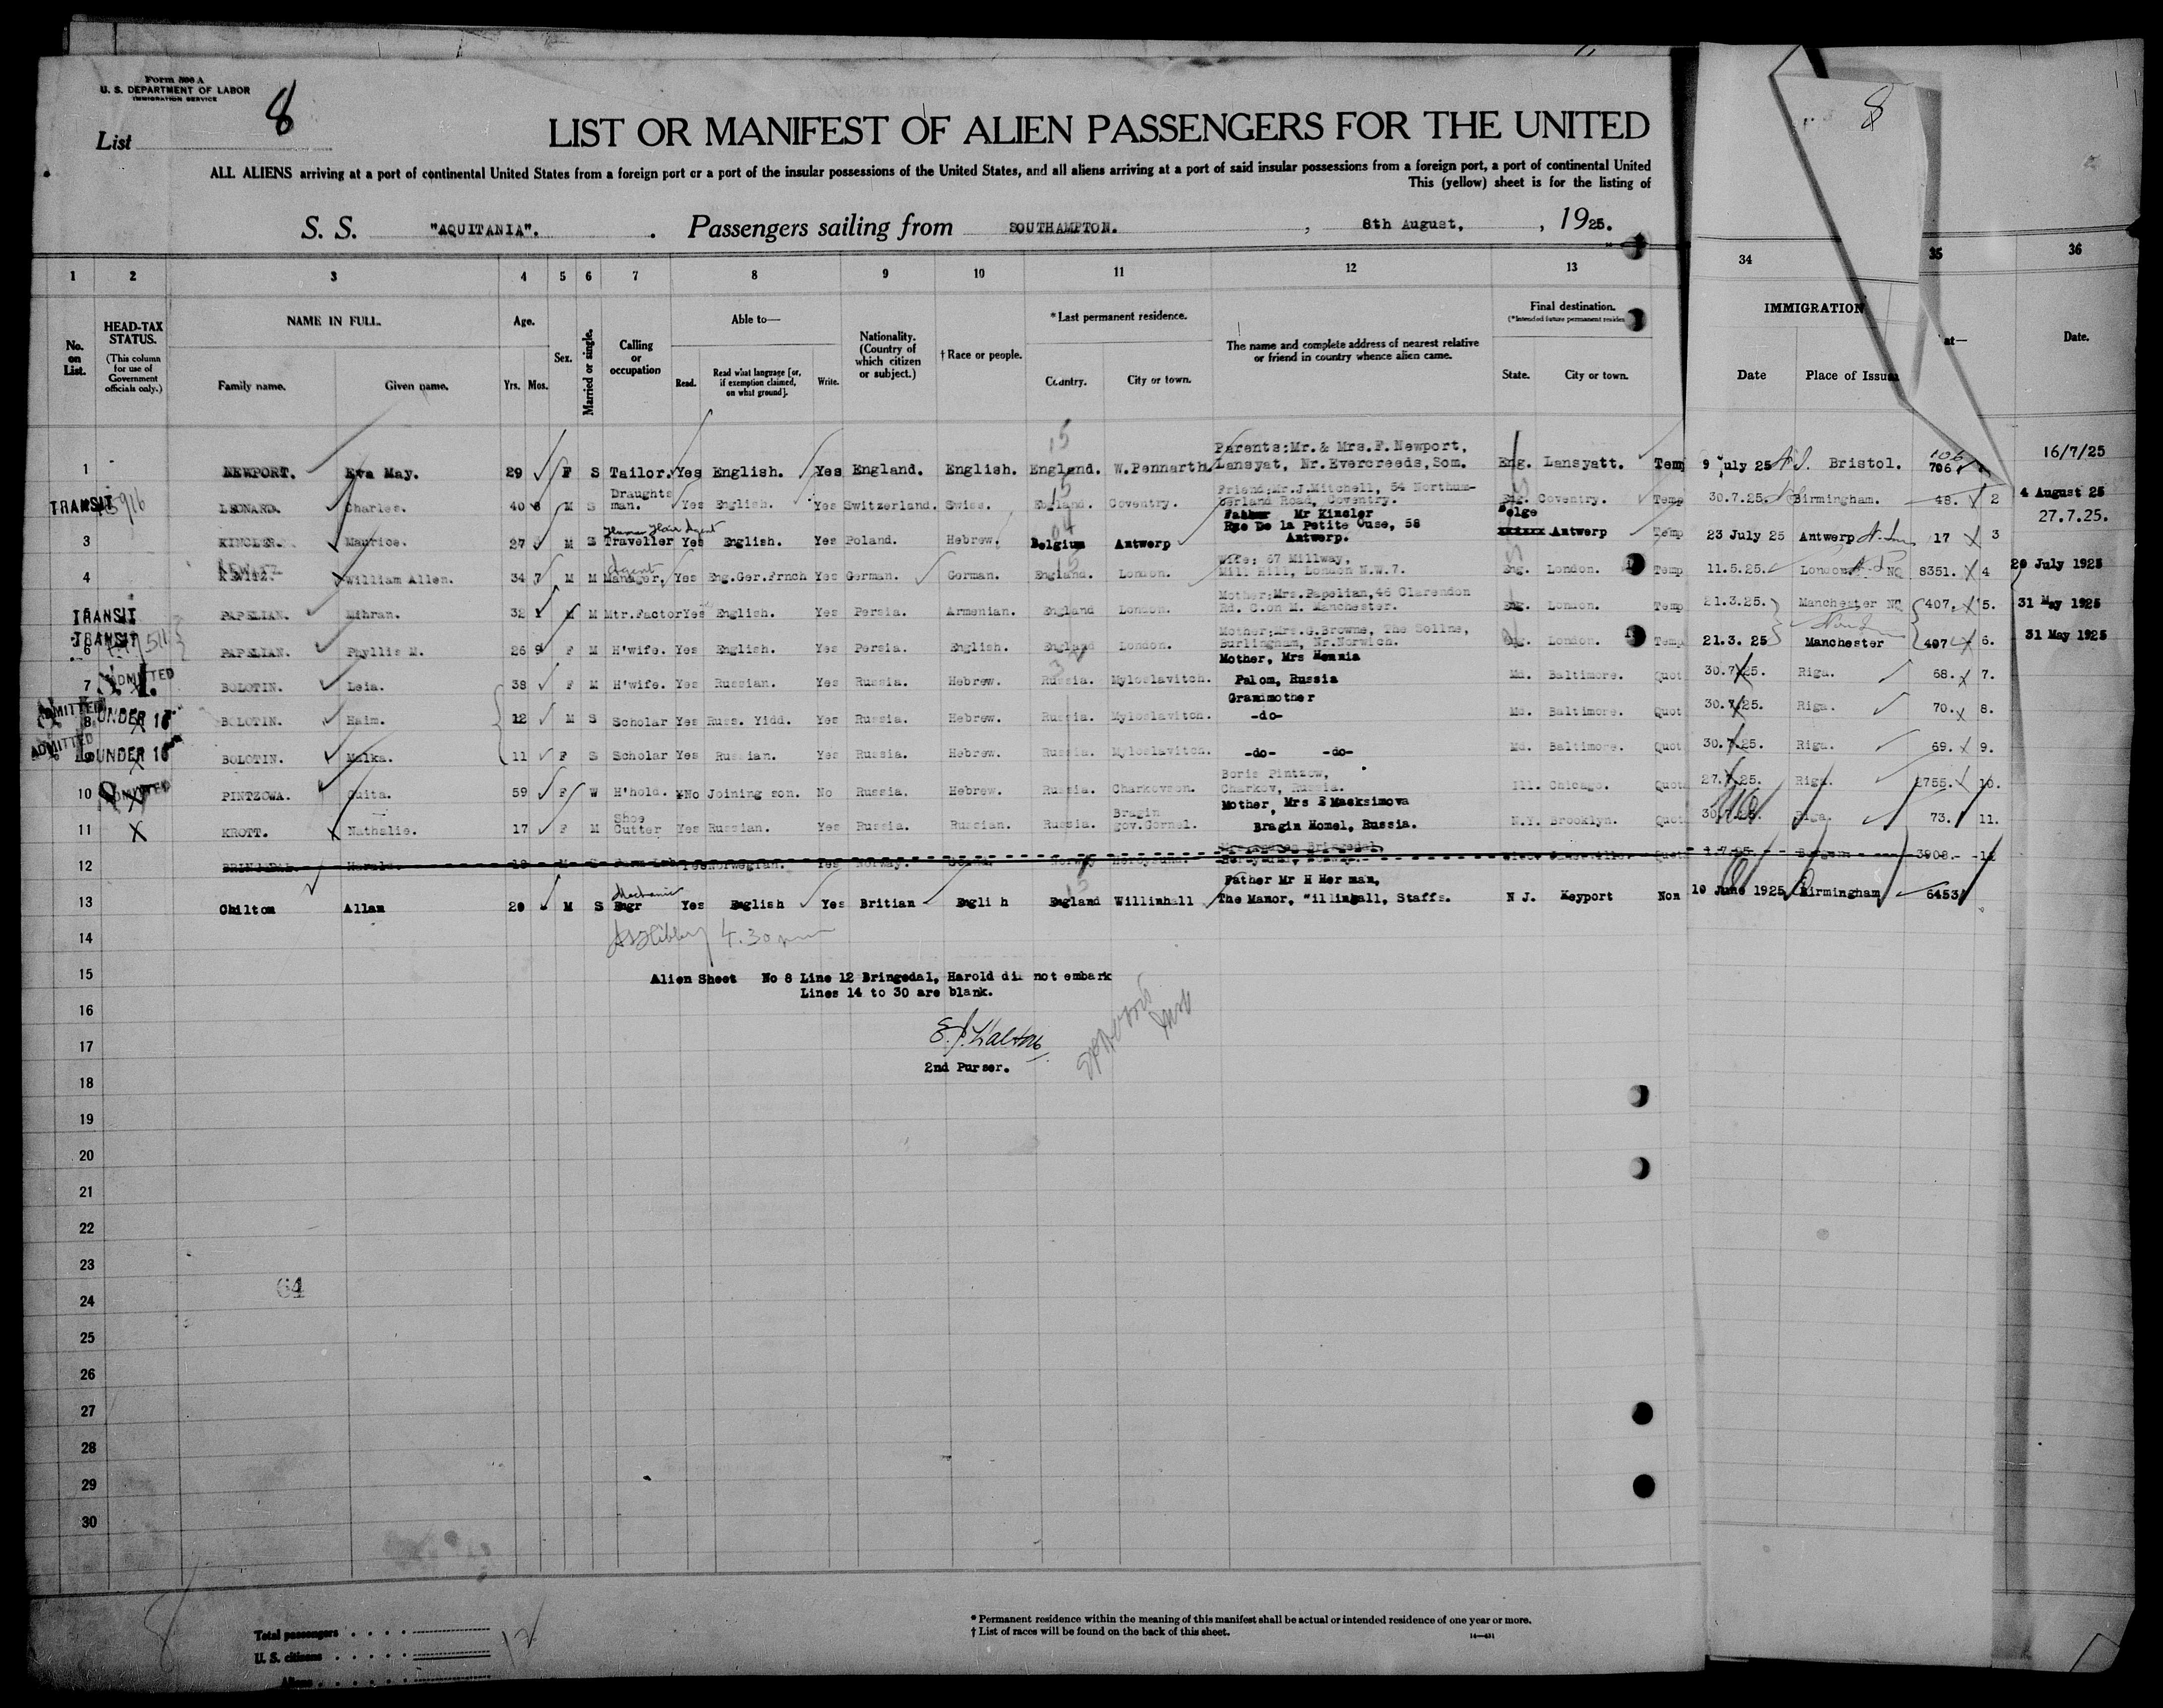 Form 500 A
U. S. DEPARTMENT OF LABOR
IMMIGRATION SERVICE
List 8
8
LIST OR MANIFEST OF ALIEN PASSENGERS FOR THE UNITED
ALL ALIENS arriving at a port of continental United States from a foreign port or a port of the insular possessions of the United States, and all aliens arriving at a port of said insular possessions from a foreign port, a port of continental United
This (yellow) sheet is for the listing of
S. S. "AQUITANIA". Passengers sailing from SOUTHAMPTON. , 8th August, , 1925.
1 2 3 4 5 6 7 8 9 10 11 12 13 34 35 36
No. on List.
HEAD-TAX STATUS.
(This column for use of Government officials only.)
NAME IN FULL.
Family name. Given name.
Age.
Yrs. Mos.
Sex.
Married or single.
Calling or occupation
Able to—
Read. Read what language [or, if exemption claimed, on what ground]. Write.
Nationality. (Country of which citizen or subject.)
† Race or people.
* Last permanent residence.
Country. City or town.
The name and complete address of nearest relative or friend in country whence alien came.
Final destination.
(*Intended future permanent
State. City or town.
IMMIGRATION
Date Place of Issu
at—
Date.
1 NEWPORT. Eva May. 29 F S Tailor. Yes English. Yes England. English. England. W.Pennarth. Parents:Mr. & Mrs.F. Newport, Lansyat, Nr.Evercreeds,Som. Eng. Lansyatt. Temp 9 July 25 Bristol. 706 106 16/7/25
TRANSIT LEONARD. Charles. 40 M S Draughtsman. Yes English. Yes Switzerland. Swiss. England. Coventry. Friend:Mr.J.Mitchell, 54 Northumberland Road, Coventry. Eng. Coventry. Temp 30.7.25. Birmingham. 48. 2 4 August 25
3 Maurice. 27 M S Human Hair Agent Traveller Yes English. Yes Poland. Hebrew. Belgium Antwerp Father Mr Kinzler Rue De la Petite Ouse, 58 Antwerp. Belge Antwerp Temp 23 July 25 Antwerp 17 3 27.7.25.
4 William Allen. 34 7 M M Agent Manager, Yes Eng.Ger.Frnch Yes German. German. England. London. Wife: 67 Millway, Mill Hill, London N.W.7. Eng. London. Temp 11.5.25. London 8351. 4 20 July 1925
TRANSIT PAPELIAN. Mihran. 32 1 M M Mtr.Factor Yes English. Yes Persia. Armenian. England London. Mother:Mrs.Papelian,46 Clarendon Rd. C.on M. Manchester. Eng. London. Temp 21.3.25. Manchester 407. 5. 31 May 1925
TRANSIT 6 PAPELIAN. Phyllis M. 26 9 F M H'wife. Yes English. Yes Persia. English. England London. Mother;Mrs.G.Browne, The Sollne, Burlingham, Nr.Norwich. Eng. London. Temp 21.3. 25 Manchester 407 6. 31 May 1925
7 ADMITTED BOLOTIN. Leia. 38 F M H'wife. Yes Russian. Yes Russia. Hebrew. Russia. Myloslavitch. Mother, Mrs Hennia Palom, Russia Md. Baltimore. Quot 30.7.25. Riga. 68. 7.
ADMITTED 8 UNDER 16 BOLOTIN. Haim. 12 M S Scholar Yes Russ. Yidd. Yes Russia. Hebrew. Russia. Myloslavitch. Grandmother -do- Md. Baltimore. Quot 30.7.25. Riga. 70. 8.
ADMITTED 9 UNDER 16 BOLOTIN. Malka. 11 F S Scholar Yes Russian. Yes Russia. Hebrew. Russia. Myloslavitch. -do- -do- Md. Baltimore. Quot 30.7.25. Riga. 69. 9.
10 ADMITTED PINTZOWA. Guita. 59 F W H'hold. No Joining son. No Russia. Hebrew. Russia. Boris Pintzow, Charkov, Russia. Ill. Chicago. Quot 27.7.25. Riga. 2755. 10.
11 X KROTT. Nathalie. 17 F M Shoe Cutter Yes Russian. Yes Russia. Russian. Russia. Bragin gov.Gomel. Mother, Mrs E Macksimova Bragin Homel, Russia. N.Y. Brooklyn. Quot 30.7.25. Riga. 73. 11.
12 BRINGEDAL. Harold. Yes Norwegian. Yes Norway. Norway Bergen 3908. 12
13 Chilton Allan 20 M S Mechanic Engr Yes English Yes Britian Engli h England Willinhall Father Mr H Her man, The Manor, "illinhall, Staffs. N J. Keyport Non 10 June 1925 Birmingham 6453
14
4.30 pm
15
Alien Sheet No 8 Line 12 Bringedal, Harold did not embark
Lines 14 to 30 are blank.
16
17
2nd Purser.
18
19
20
21
22
23
64
24
25
26
27
28
29
30
Total passengers
U. S. citizens
Aliens
12
* Permanent residence within the meaning of this manifest shall be actual or intended residence of one year or more.
† List of races will be found on the back of this sheet.
14—431